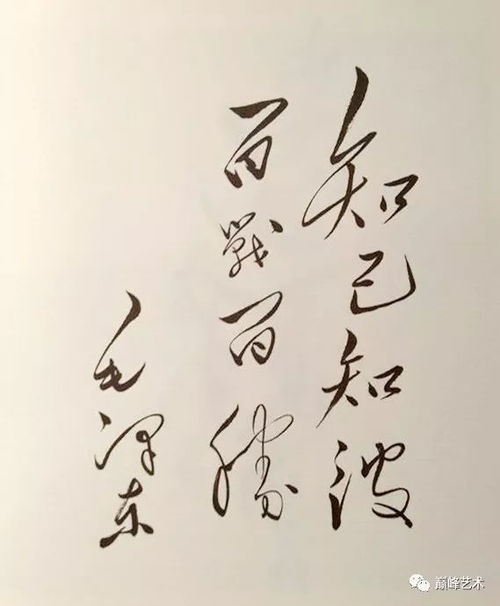 知己知彼
百戰百勝
毛泽东
巅峰艺术